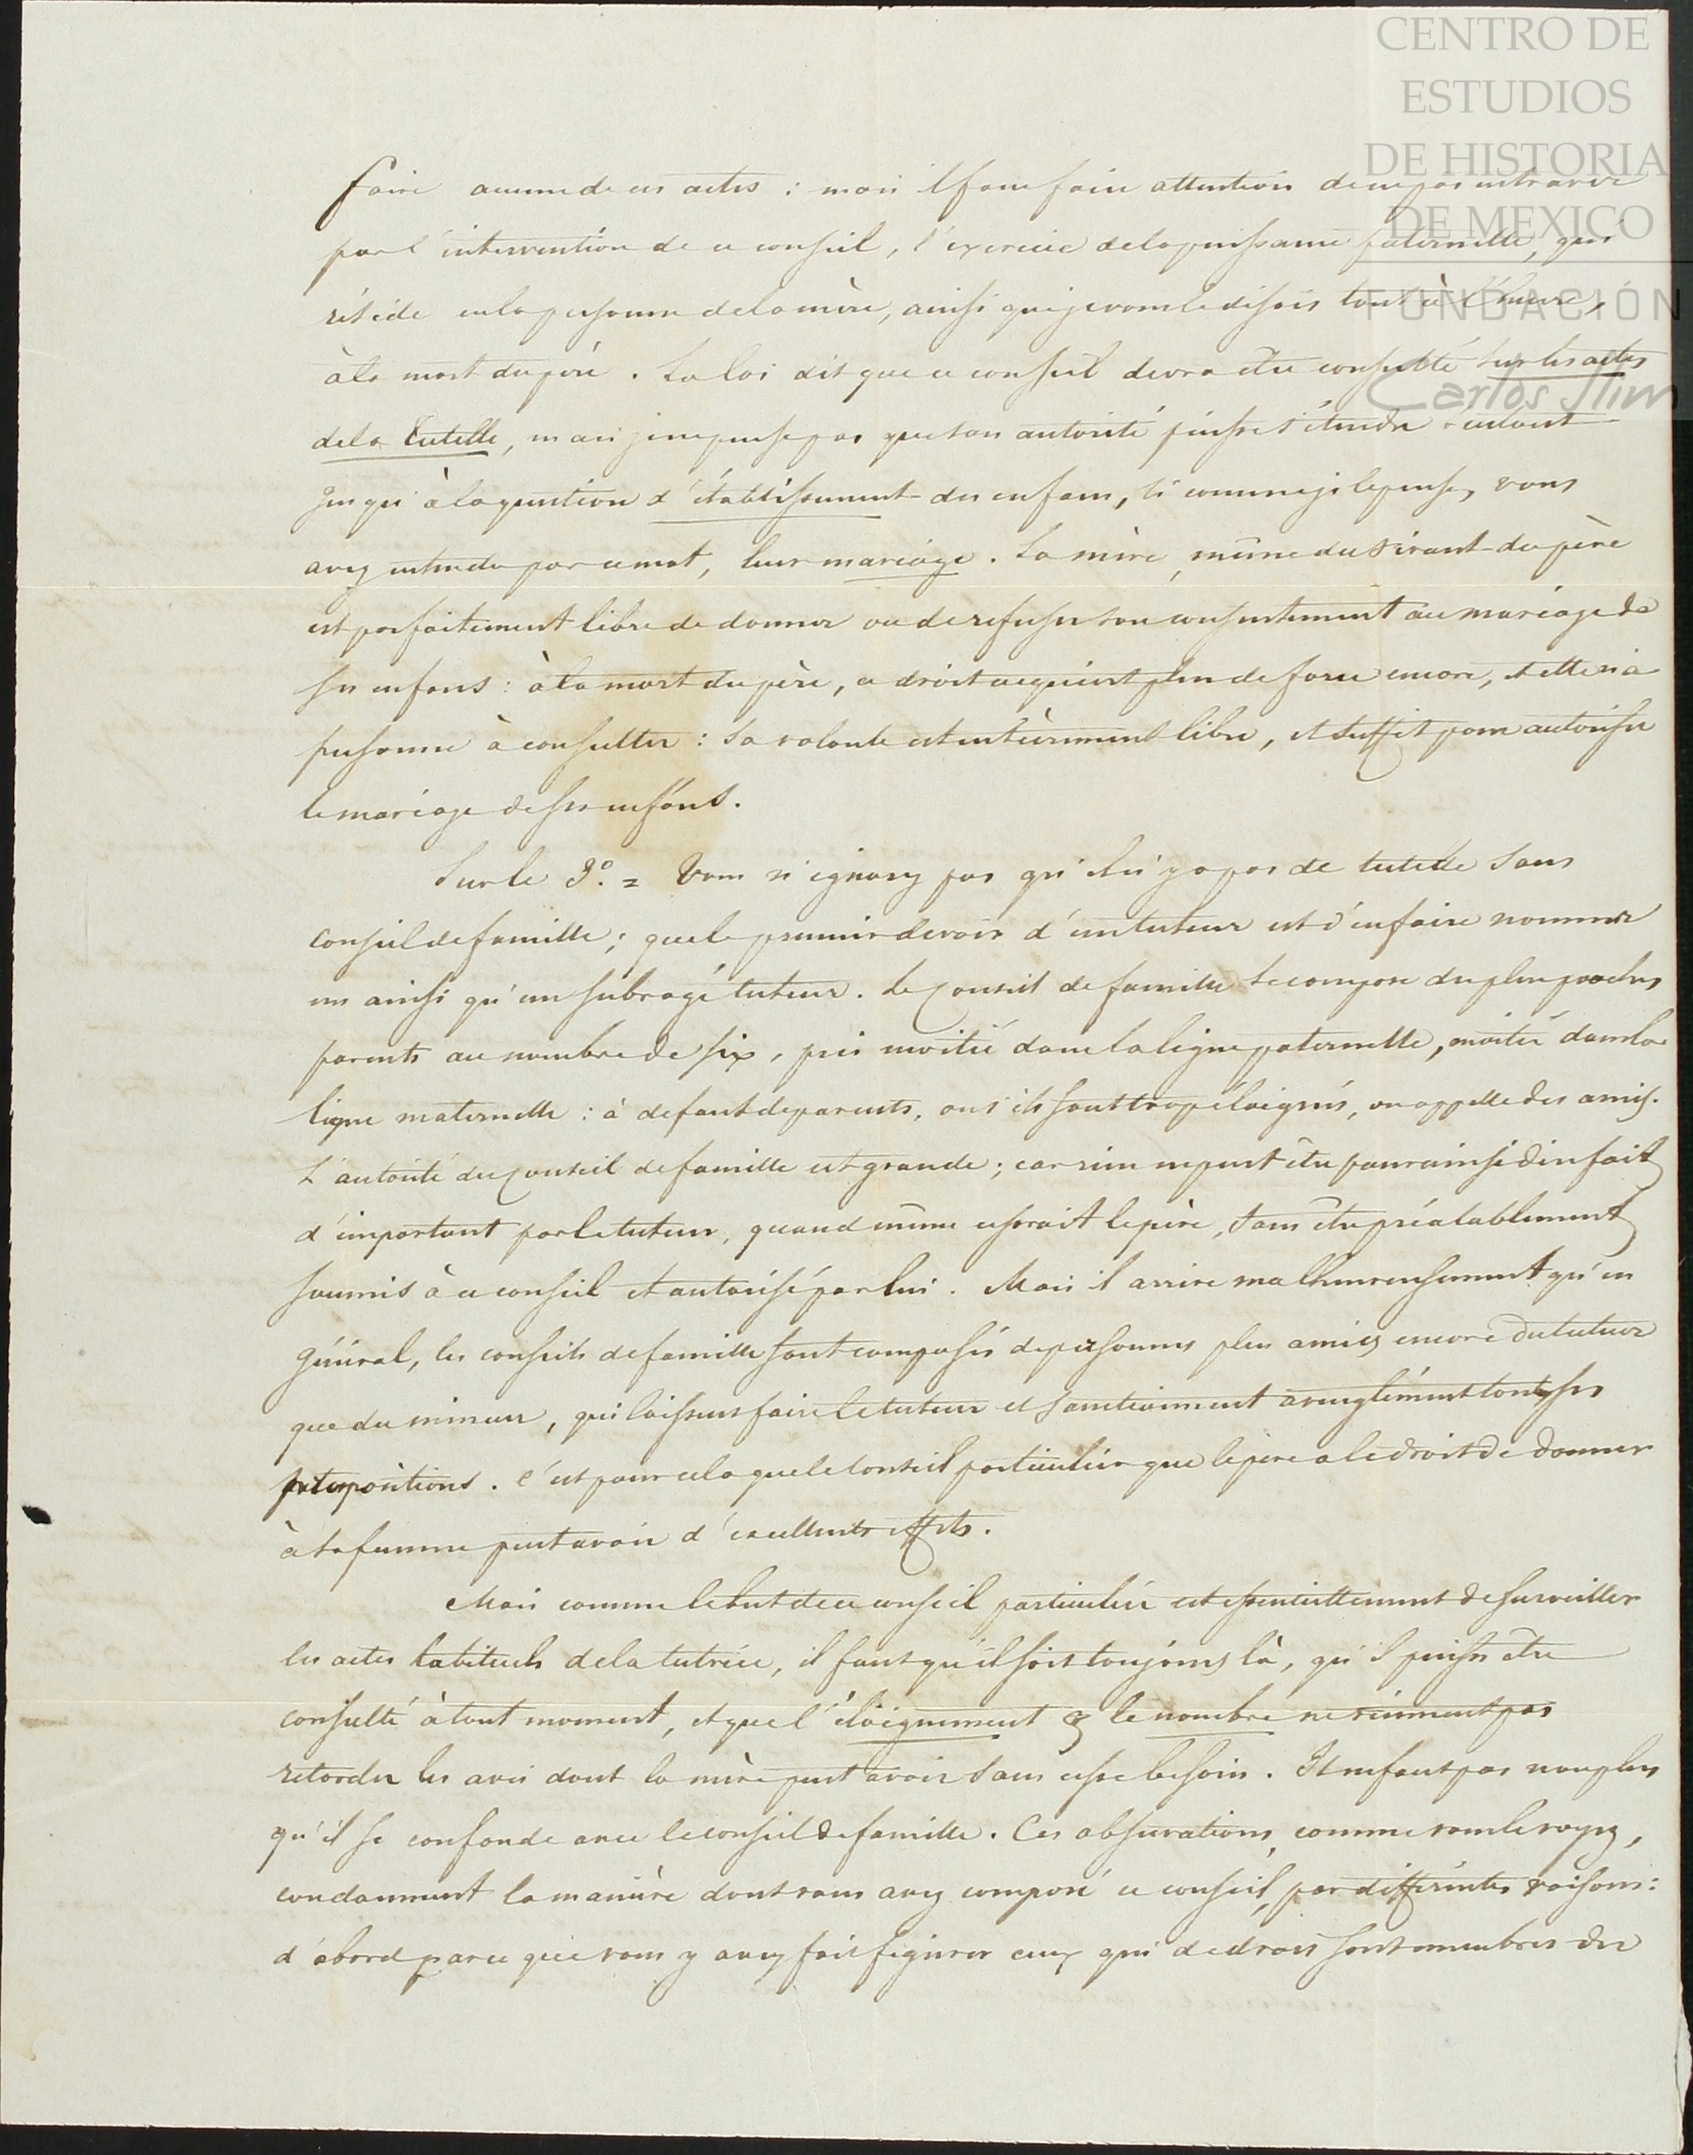 CENTRO DE
ESTUDIOS
DE HISTORIA
DE MEXICO
FUNDACIÓN
Carlos Slim
faire aucun de ces actes : mais il faut faire attention de ne pas entraver
par l'intervention de ce conseil, l'exercice de la puissance paternelle, qui
réside en la personne de la mère, ainsi que je vous le disais tout à l'heure,
à la mort du père. La loi dit que ce conseil devra être consulté sur les actes
de la tutelle, mais je ne pense pas que son autorité puisse s'étendre
jusqu'à la question d'établissement des enfans, si comme je le pense, vous
avez entendu par ce mot, leur mariage. La mère, même du vivant du père
est parfaitement libre de donner ou de refuser son consentement au mariage de
ses enfans : à la mort du père, ce droit acquiert plus de force encore, et elle n'a
personne à consulter : sa volonté est entièrement libre, et suffit pour autoriser
le mariage de ses enfans.
Sur le 3°. = Vous n'ignorez pas qu'il n'y a pas de tutelle sans
conseil de famille ; que le premier devoir d'un tuteur est d'en faire nommer
un ainsi qu'un subrogé tuteur. Le Conseil de famille se compose des plus proches
parents au nombre de six, pris moitié dans la ligne paternelle, moitié dans la
ligne maternelle : à defaut de parents, ou s'ils sont trop éloignés, on appelle des amis.
L'autorité du Conseil de famille est grande ; car rien ne peut être pour ainsi dire fait
d'important par le tuteur, quand même ce serait le père, sans être préalablement
soumis à ce conseil et autorisé par lui. Mais il arrive malheureusement qu'en
général, les conseils de famille sont composés de personnes plus amies encore du tuteur
que du mineur, qui laissent faire le tuteur et sanctionnent aveuglément toutes ses
propositions. C'est pour cela que le conseil particulier que le père a le droit de donner
à sa femme peut avoir d'excellents effets.
Mais comme le but de ce conseil particulier est essentiellement de surveiller
les actes habituels de la tutrice, il faut qu'il soit toujours là, qu'il puisse être
consulté à tout moment, et que l'éloignement & le nombre ne viennent pas
retarder les avis dont la mère peut avoir sans cesse besoin. Il ne faut pas non plus
qu'il se confonde avec le conseil de famille. Ces observations, comme vous le voyez,
condamnent la manière dont vous avez composé ce conseil, par différentes raisons :
d'abord parce que vous y avez fait figurer ceux qui de droit sont membres du